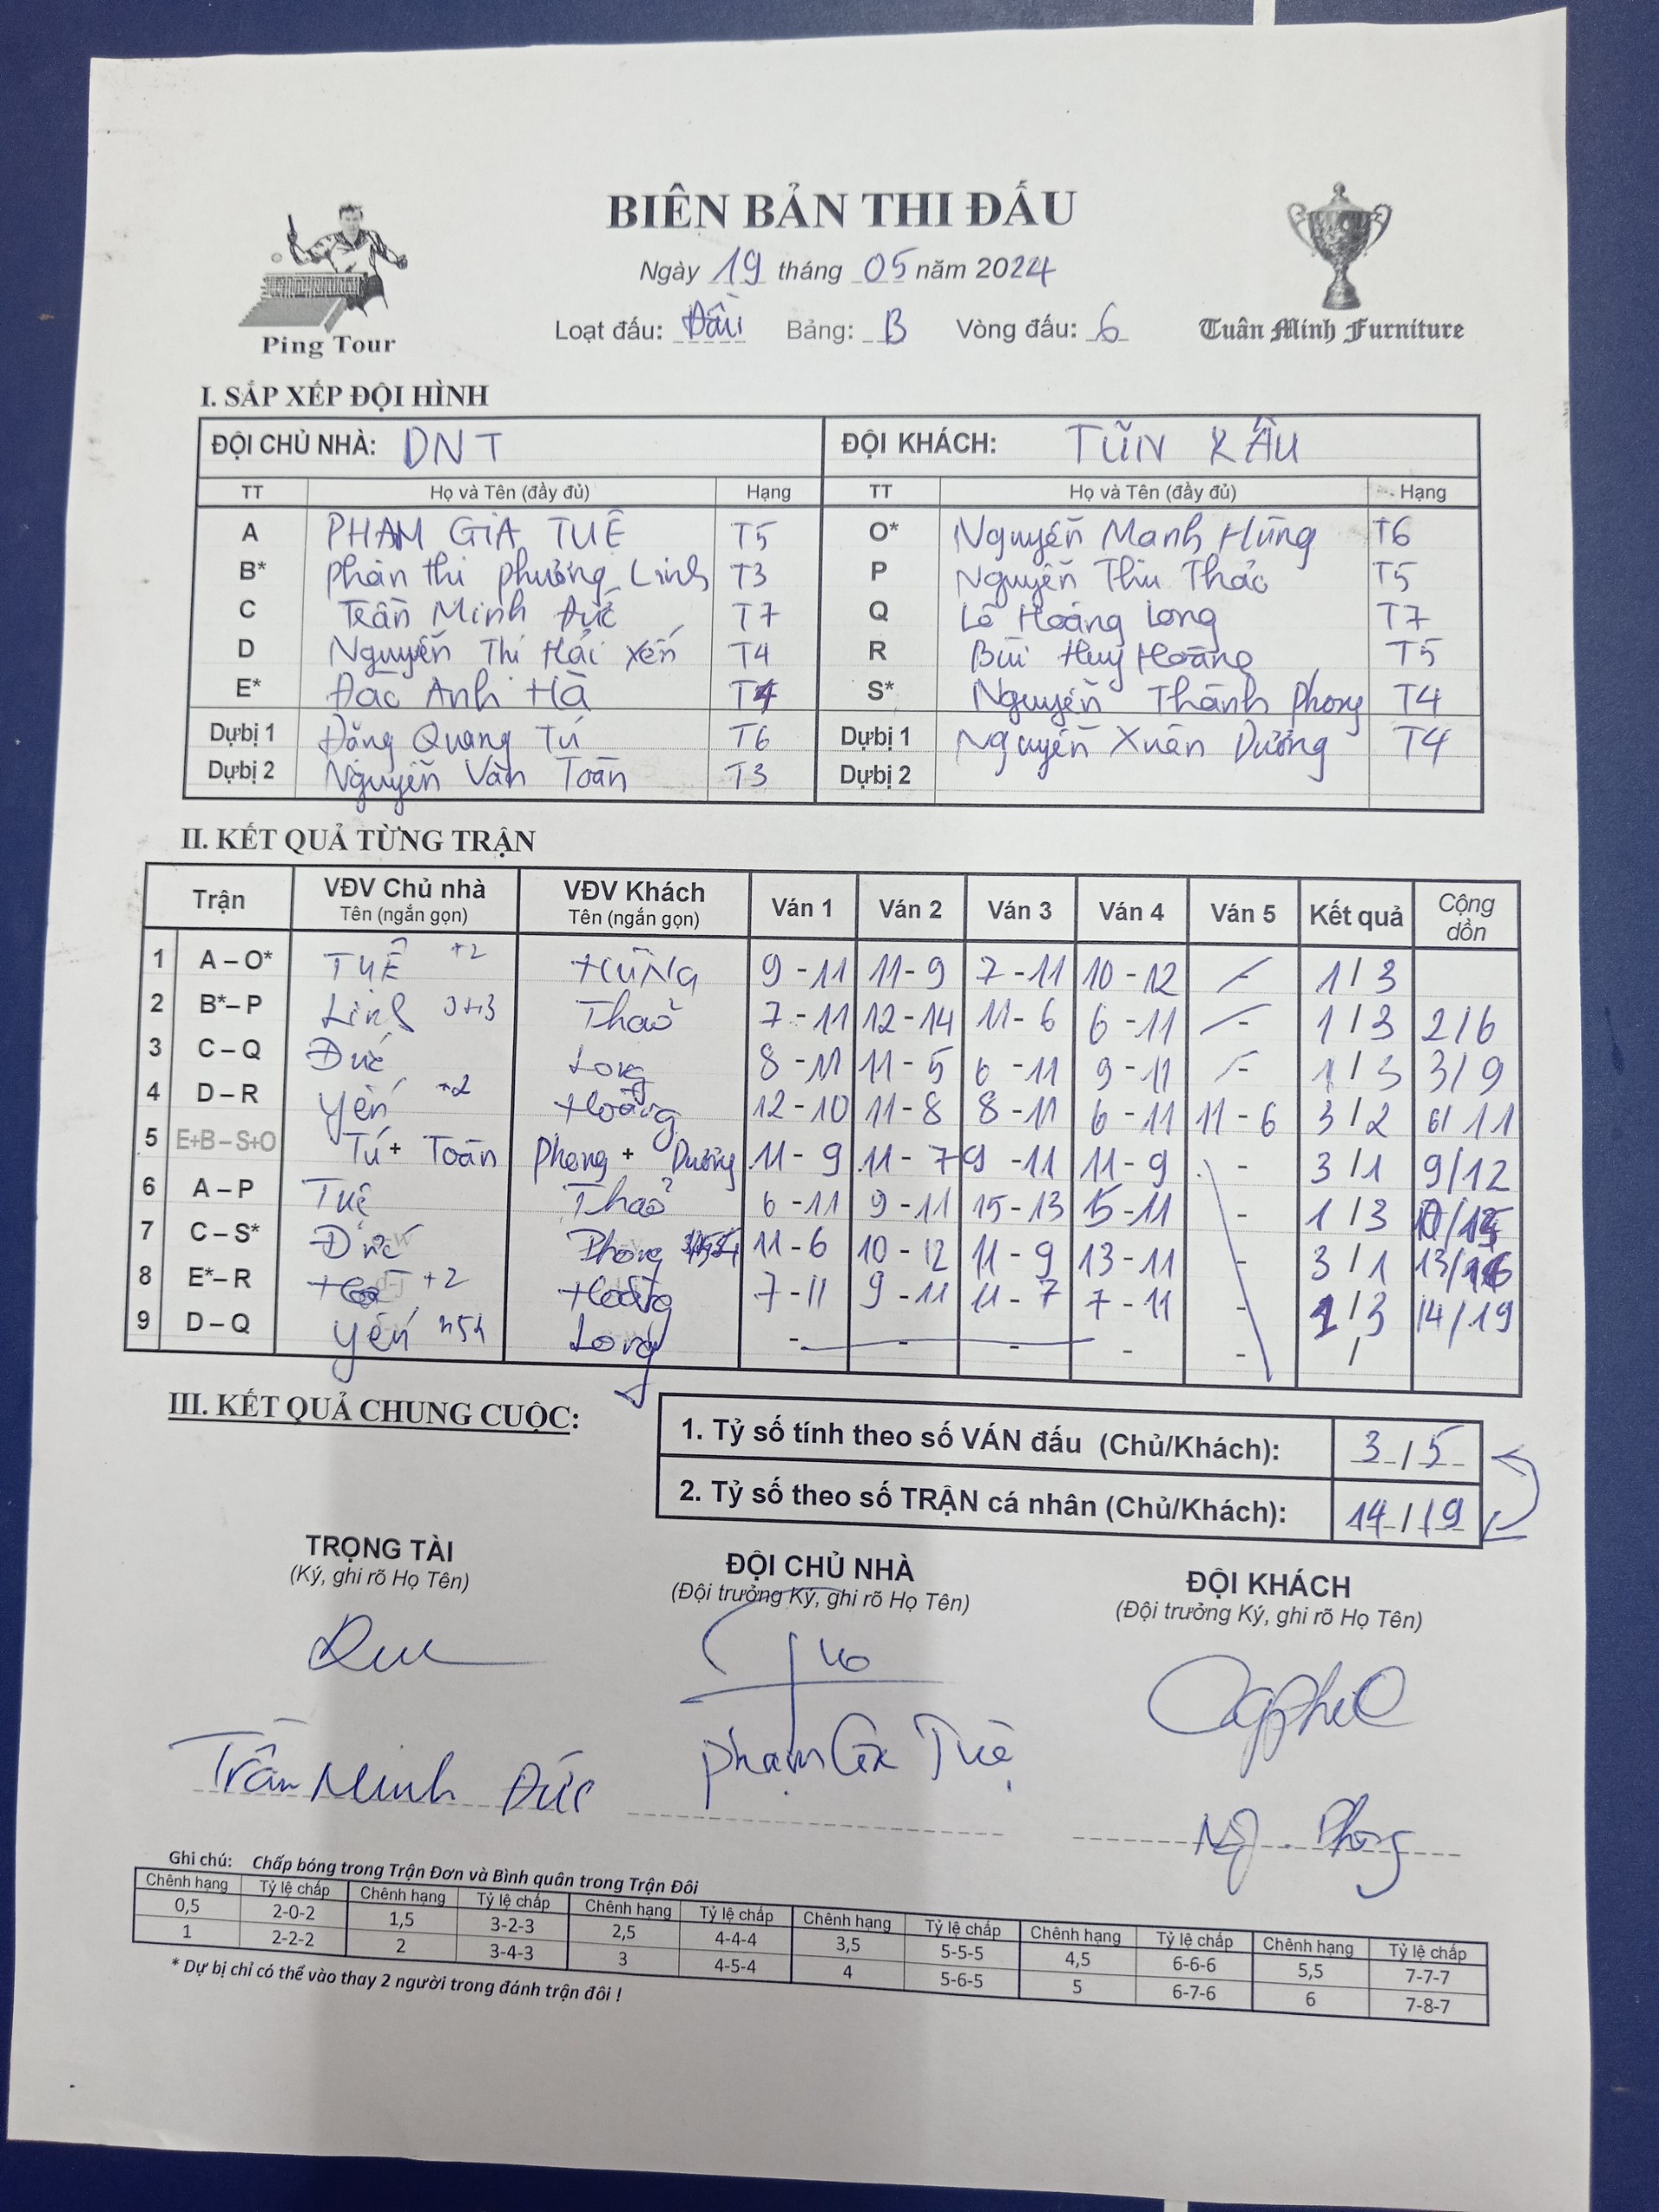 BIÊN BẢN THI ĐẤU
Ngày 19 tháng 05 năm 2024
Loạt đấu: Đầu Bảng: B Vòng đấu: 6
Ping Tour
Tuân Minh Furniture
I. SẮP XẾP ĐỘI HÌNH
ĐỘI CHỦ NHÀ: DNT ĐỘI KHÁCH: TŨN KẦU
TT Họ và Tên (đầy đủ) Hạng TT Họ và Tên (đầy đủ) Hạng
A PHẠM GIA TUỆ T5 O* Nguyễn Manh Hùng T6
B* phan thi phương Linh T3 P Nguyễn Thu Thảo T5
C Trần Minh Đức T7 Q Lê Hoàng Long T7
D Nguyễn Thi Hải Yến T4 R Bùi Huy Hoàng T5
E* Đào Anh Hà T4 S* Nguyễn Thành Phong T4
Dự bị 1 Đặng Quang Tú T6 Dự bị 1 Nguyễn Xuân Dương T4
Dự bị 2 Nguyễn Văn Toàn T3 Dự bị 2
II. KẾT QUẢ TỪNG TRẬN
Trận VĐV Chủ nhà VĐV Khách Ván 1 Ván 2 Ván 3 Ván 4 Ván 5 Kết quả Cộng dồn
Tên (ngắn gọn) Tên (ngắn gọn)
1 A – O* TUỆ +2 HÙNG 9 - 11 11 - 9 7 - 11 10 - 12 - 1 / 3
2 B* – P Linh Thảo 7 - 11 12 - 14 11 - 6 6 - 11 - 1 / 3 2/6
3 C – Q Đức Long 8 - 11 11 - 5 6 - 11 9 - 11 - 1 / 3 3/9
4 D – R Yến +2 Hoàng 12 - 10 11 - 8 8 - 11 6 - 11 11 - 6 3 / 2 6/11
5 E+B – S+O Tú + Toàn Phong + Dương 11 - 9 11 - 7 9 - 11 11 - 9 - 3 / 1 9/12
6 A – P Tuệ Thảo 6 - 11 9 - 11 15 - 13 15 - 11 - 1 / 3 10/15
7 C – S* Đức Phong 11 - 6 10 - 12 11 - 9 13 - 11 - 3 / 1 13/16
8 E* – R +2 Hoàng 7 - 11 9 - 11 11 - 7 7 - 11 - 1 / 3 14/19
9 D – Q Yến Long - - - - - /
III. KẾT QUẢ CHUNG CUỘC:
1. Tỷ số tính theo số VÁN đấu (Chủ/Khách): 3 / 5
2. Tỷ số theo số TRẬN cá nhân (Chủ/Khách): 14 / 19
TRỌNG TÀI ĐỘI CHỦ NHÀ ĐỘI KHÁCH
(Ký, ghi rõ Họ Tên) (Đội trưởng Ký, ghi rõ Họ Tên) (Đội trưởng Ký, ghi rõ Họ Tên)
Trần Minh Đức Phạm Gia Tuệ Ng. Phong
Ghi chú: Chấp bóng trong Trận Đơn và Bình quân trong Trận Đôi
Chênh hạng Tỷ lệ chấp Chênh hạng Tỷ lệ chấp Chênh hạng Tỷ lệ chấp Chênh hạng Tỷ lệ chấp Chênh hạng Tỷ lệ chấp Chênh hạng Tỷ lệ chấp
0,5 2-0-2 1,5 3-2-3 2,5 4-4-4 3,5 5-5-5 4,5 6-6-6 5,5 7-7-7
1 2-2-2 2 3-4-3 3 4-5-4 4 5-6-5 5 6-7-6 6 7-8-7
* Dự bị chỉ có thể vào thay 2 người trong đánh trận đôi !